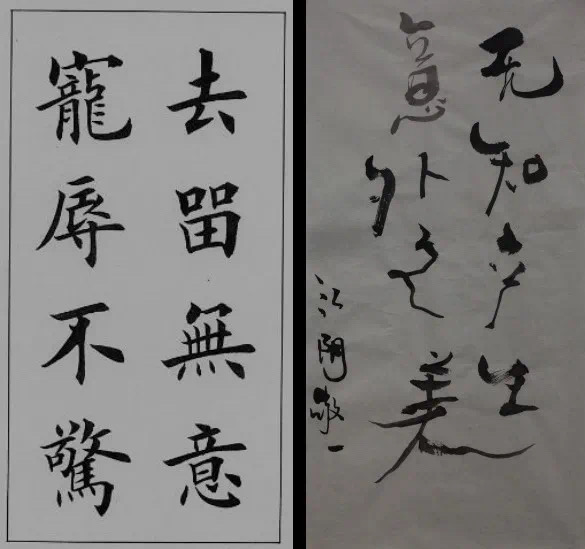 去留無意
寵辱不驚
无知产生
意外之美